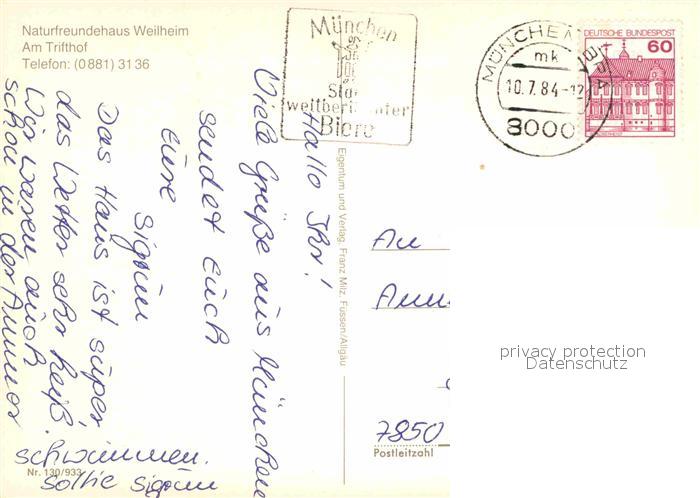 Naturfreundehaus Weilheim
Am Trifthof
Telefon: (0881) 3136
München
Stadt
weltberühmter
Biere
MÜNCHEN
mk
10.7.84-12
8000
DEUTSCHE BUNDESPOST
60
Hallo Ihr!
Viele Grüße aus München
sendet Euch
Eure
Sigrun
Das Haus ist super
das Wetter sehr heiß.
Wir waren auch
schon in der Ammer
schwimmen.
Sigrun
Eigentum und Verlag, Franz Milz, Füssen/Allgäu
An
7850
Postleitzahl
privacy protection
Datenschutz
Nr. 130/933